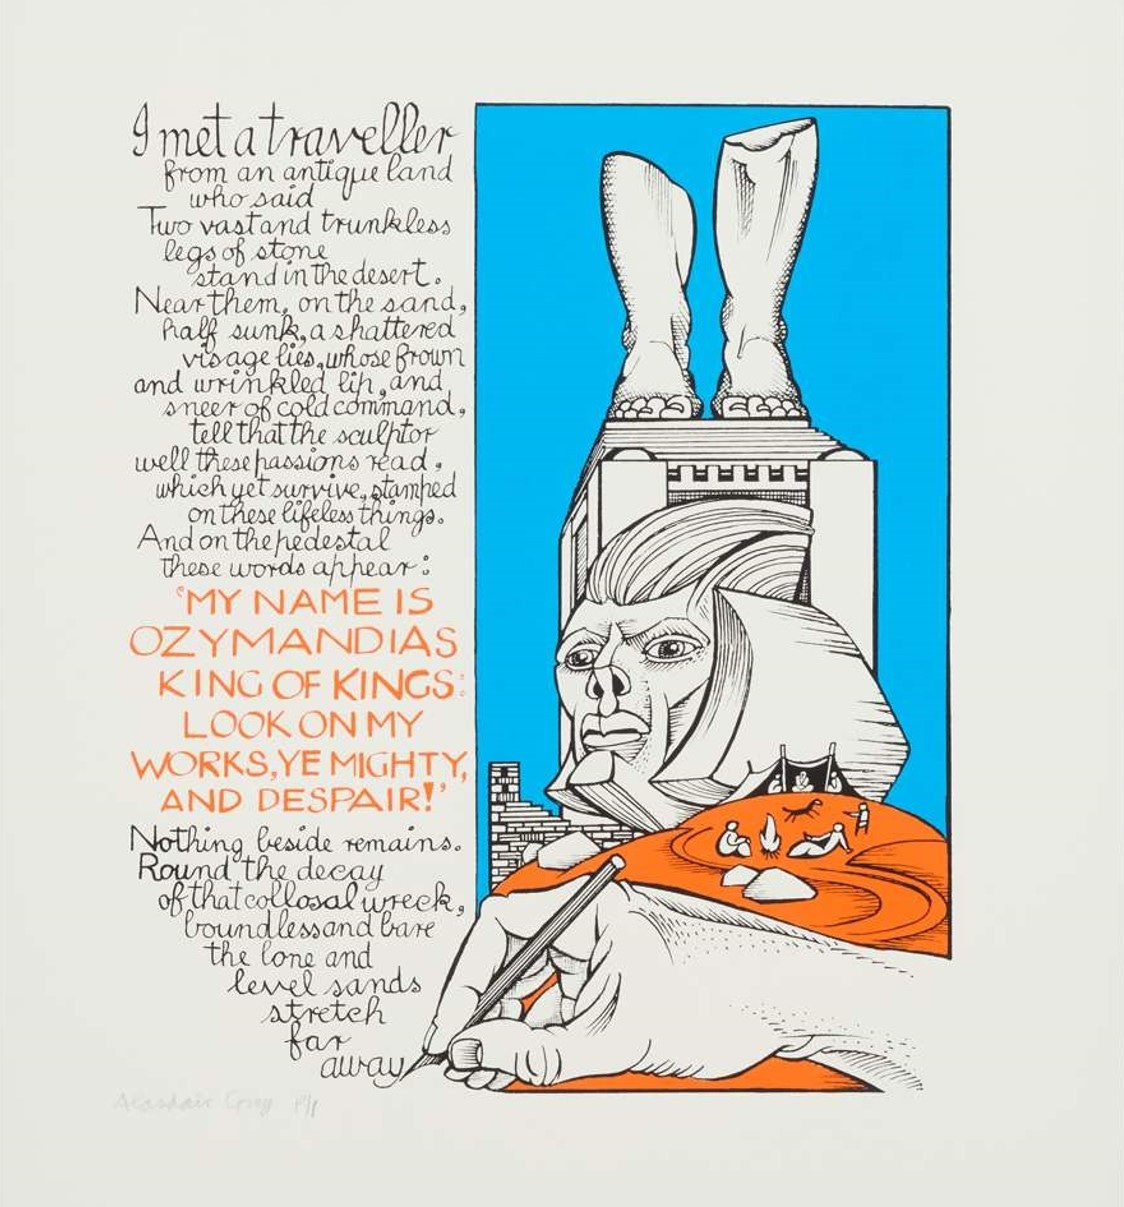 I met a traveller
from an antique land
who said
Two vast and trunkless
legs of stone
stand in the desert.
Near them, on the sand,
half sunk, a shattered
visage lies, whose frown
and wrinkled lip, and
sneer of cold command,
tell that the sculptor
well these passions read,
which yet survive, stamped
on these lifeless things.
And on the pedestal
these words appear:
'MY NAME IS
OZYMANDIAS
KING OF KINGS:
LOOK ON MY
WORKS, YE MIGHTY,
AND DESPAIR!'
Nothing beside remains.
Round the decay
of that collosal wreck,
boundless and bare
the lone and
level sands
stretch
far
away
Alasdair Gray